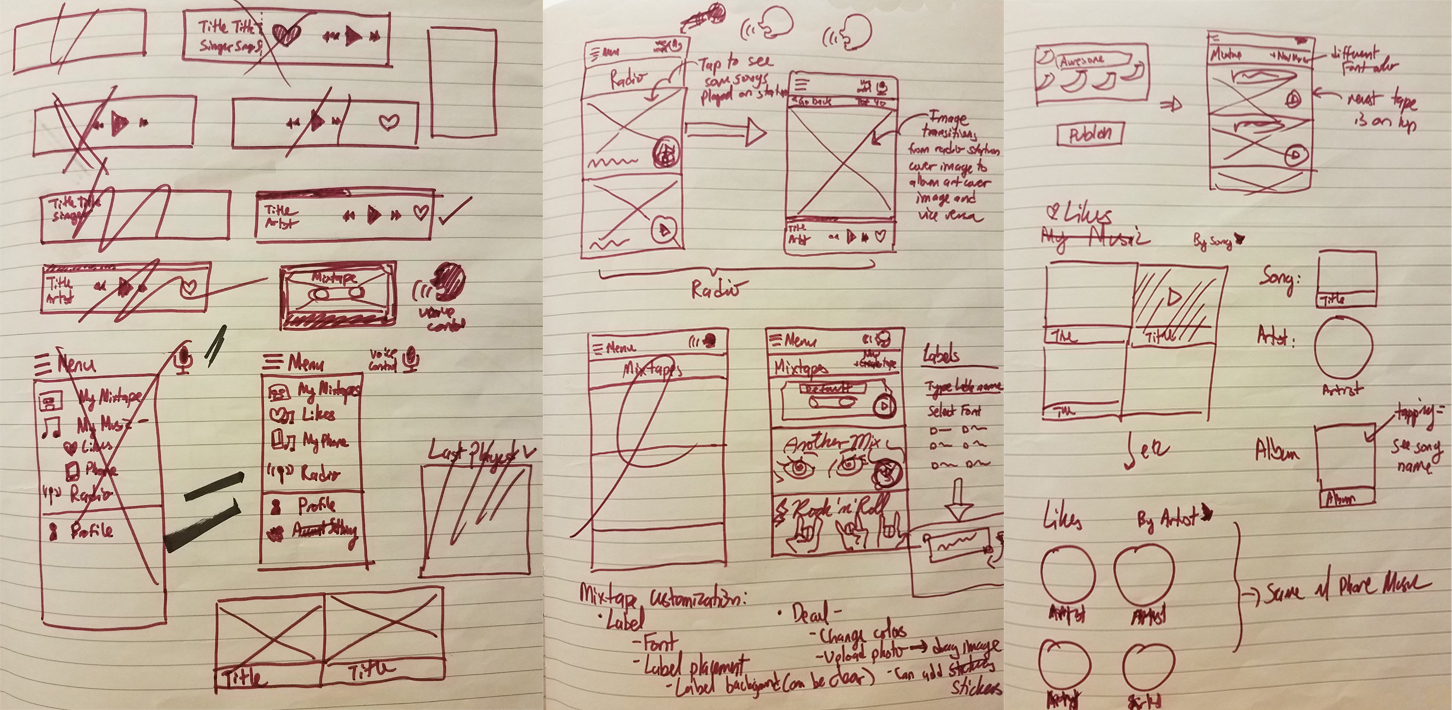 Title Title
Singer Singer
Title Title
Singer
Title
Artist
Title
Artist
Mixtape
voice
control
Menu
My Mixtape
My Music
Likes
Phone
Radio
Profile
Menu
voice
control
My Mixtapes
Likes
My Phone
Radio
Profile
Account Setting
Last Played
Title
Title
Menu
Radio
Tap to see
songs
played on station
Go back
Title
Artist
Image
transitions
from radio station
cover image to
album art cover
image and
vice versa
Radio
Menu
Mixtapes
Menu
Mixtapes
Default
Another Mix
Rock 'n' Roll
Labels
Type label name
Select Font
Mixtape customization:
• Label
- Font
- Label placement
- Label background (can be clear)
• Decal -
- Change colors
- Upload photo → drag image
- Can add
stickers
Awesome
Publish
+ New
different
Font color
newest tape
is on top
Likes
My Music
By Song
Title
Title
Title
Song:
Title
Artist:
Artist
Album
Album
tapping =
see song
name
Likes
By Artist
Artist
Artist
Artist
Artist
→ Same w/ Phone Music